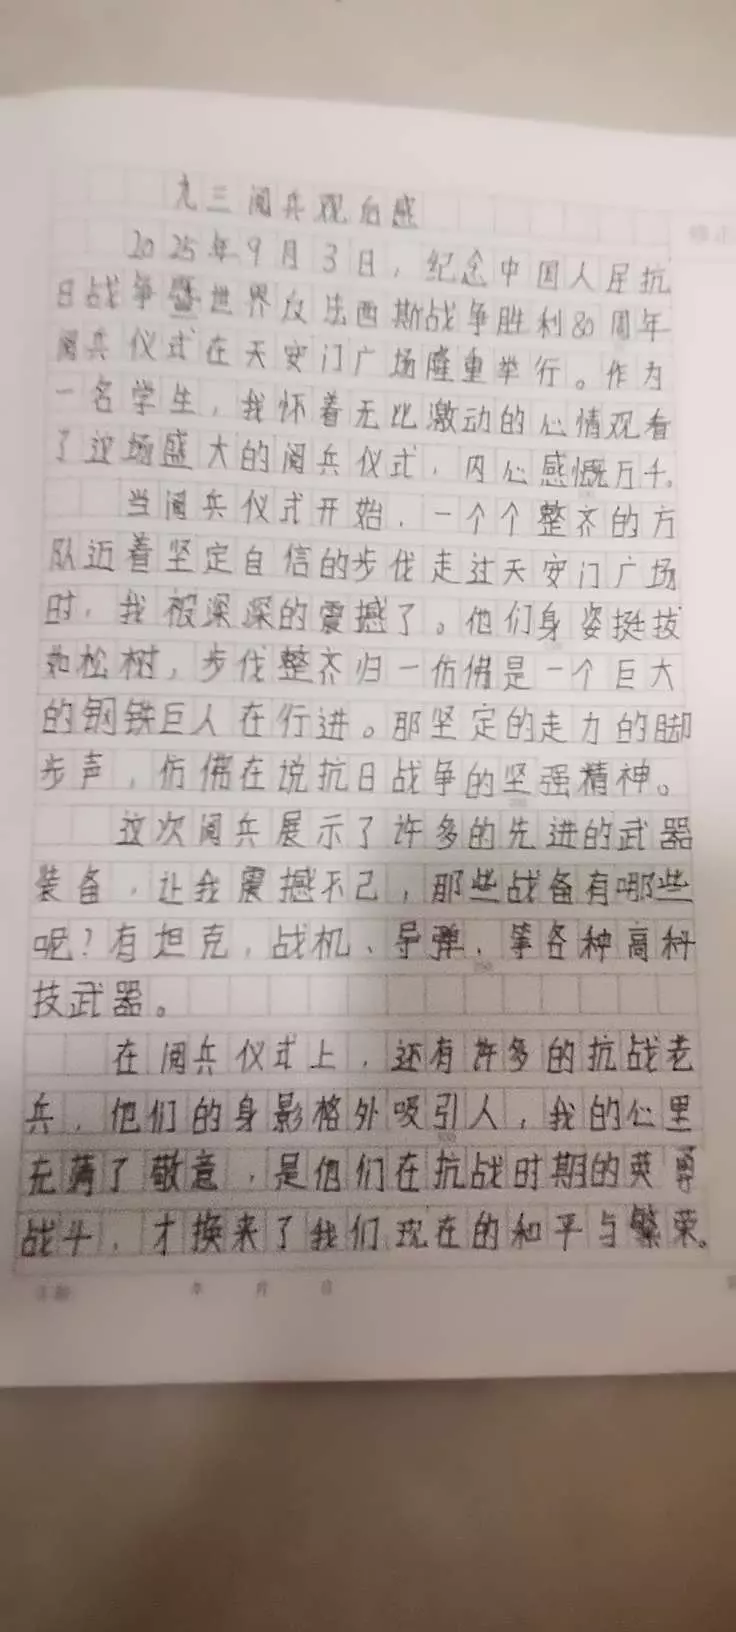 九三阅兵观后感
2025年9月3日，纪念中国人民抗
日战争暨世界反法西斯战争胜利80周年
阅兵仪式在天安门广场隆重举行。作为
一名学生，我怀着无比激动的心情观看
了这场盛大的阅兵仪式，内心感慨万千。
当阅兵仪式开始，一个个整齐的方
队迈着坚定自信的步伐走过天安门广场
时，我被深深的震撼了。他们身姿挺拔
如松树，步伐整齐归一仿佛是一个巨大
的钢铁巨人在行进。那坚定的走力的脚
步声，仿佛在说抗日战争的坚强精神。
这次阅兵展示了许多的先进的武器
装备，让我震撼不已，那些战备有哪些
呢？有坦克，战机、导弹、等各种高科
技武器。
在阅兵仪式上，还有许多的抗战老
兵，他们的身影格外吸引人，我的心里
充满了敬意，是他们在抗战时期的英
战斗，才换来了我们现在的和平与繁荣。
年 月 日